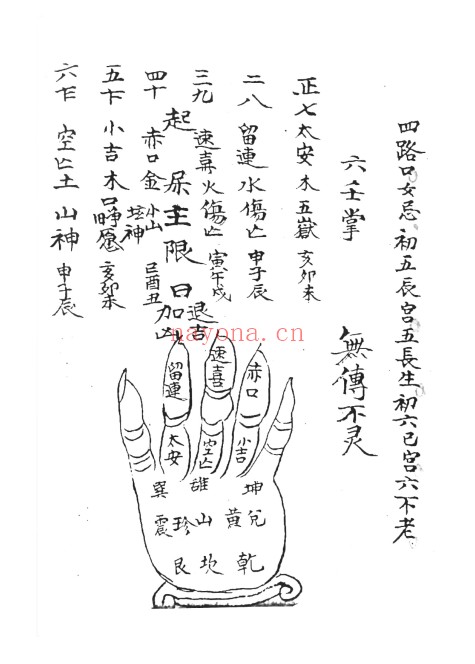 四路口女忌初五辰宫五長生初六巳宫六不老
六壬掌
無傳不灵
正七太安木五嶽亥卯未
二八留連水傷亡申子辰
三九速喜火傷亡寅午戌
起屎主限日加凶退吉
四十赤口金小山坛神巳酉丑
五卞小吉木口睁愿亥卯未
六乍空亡土山神申子辰
nayona.cn
留連
速喜
赤口
太安
空亡
小吉
巽
雄
坤
震
珍
山
黄
兑
艮
坎
乾